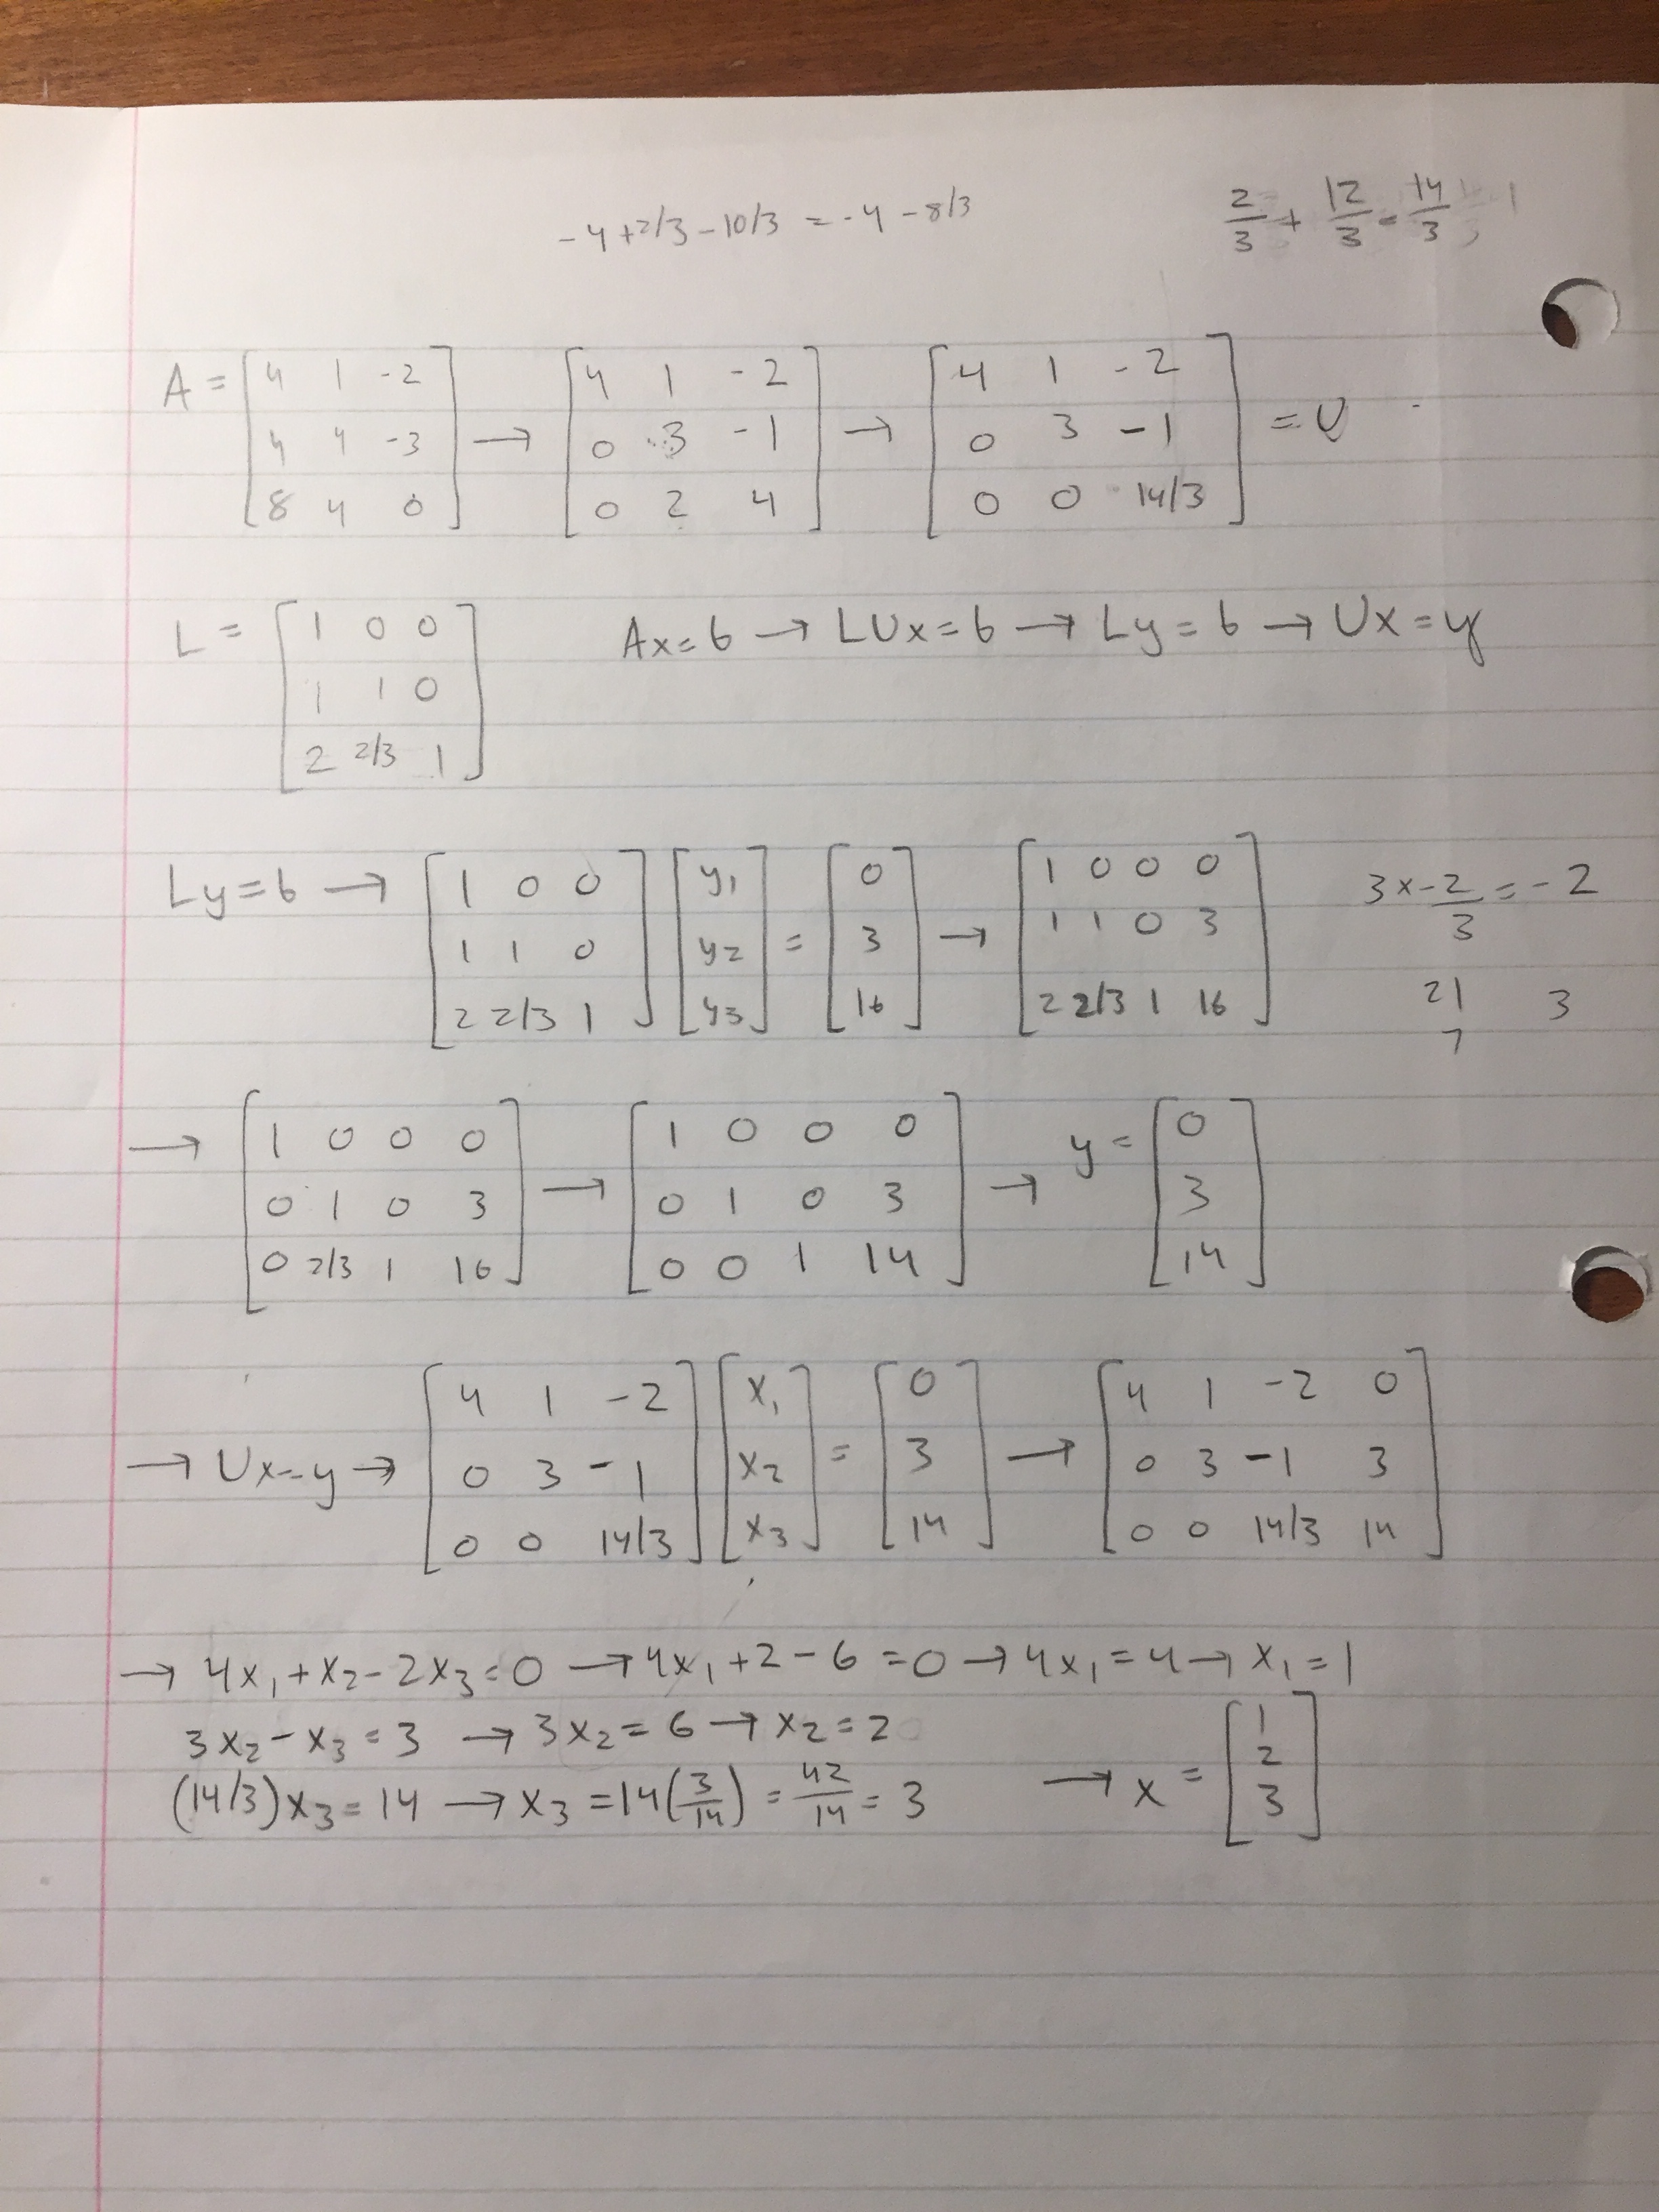 -4+2/3-10/3 = -4-8/3
2/3 + 12/3 = 14/3
A = [4 1 -2; 4 4 -3; 8 4 0] → [4 1 -2; 0 3 -1; 0 2 4] → [4 1 -2; 0 3 -1; 0 0 14/3] = U
L = [1 0 0; 1 1 0; 2 2/3 1]
Ax=b → LUx=b → Ly=b → Ux=y
Ly=b → [1 0 0; 1 1 0; 2 2/3 1] [y1; y2; y3] = [0; 3; 16] → [1 0 0 0; 1 1 0 3; 2 2/3 1 16]
3x-2/3 = -2
21 3
7
→ [1 0 0 0; 0 1 0 3; 0 2/3 1 16] → [1 0 0 0; 0 1 0 3; 0 0 1 14] → y = [0; 3; 14]
→ Ux=y → [4 1 -2; 0 3 -1; 0 0 14/3] [x1; x2; x3] = [0; 3; 14] → [4 1 -2 0; 0 3 -1 3; 0 0 14/3 14]
→ 4x1+x2-2x3=0 → 4x1+2-6=0 → 4x1=4 → x1=1
3x2-x3=3 → 3x2=6 → x2=2
(14/3)x3=14 → x3=14(3/14)=42/14=3
→ x = [1; 2; 3]